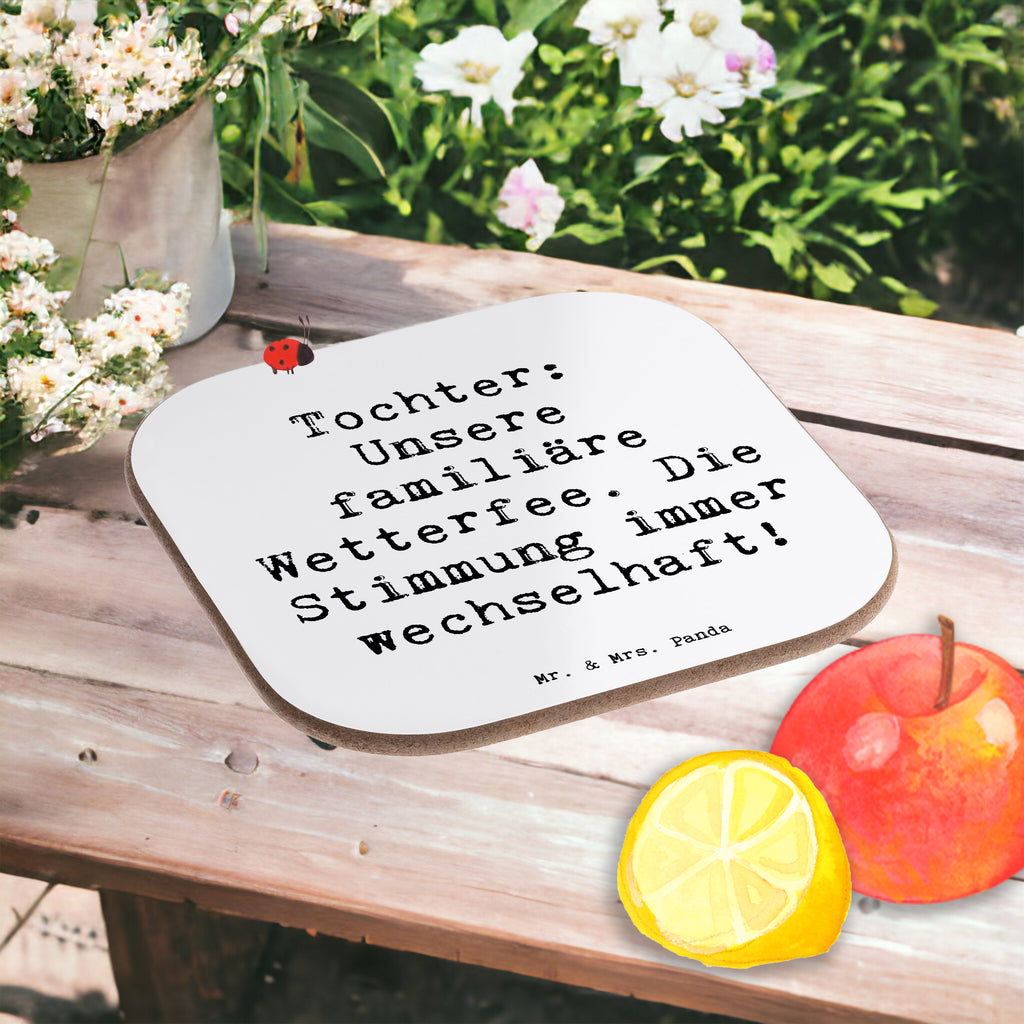 Tochter:
Unsere
familiäre
Wetterfee. Die
Stimmung immer
wechselhaft!
Mr. & Mrs. Panda